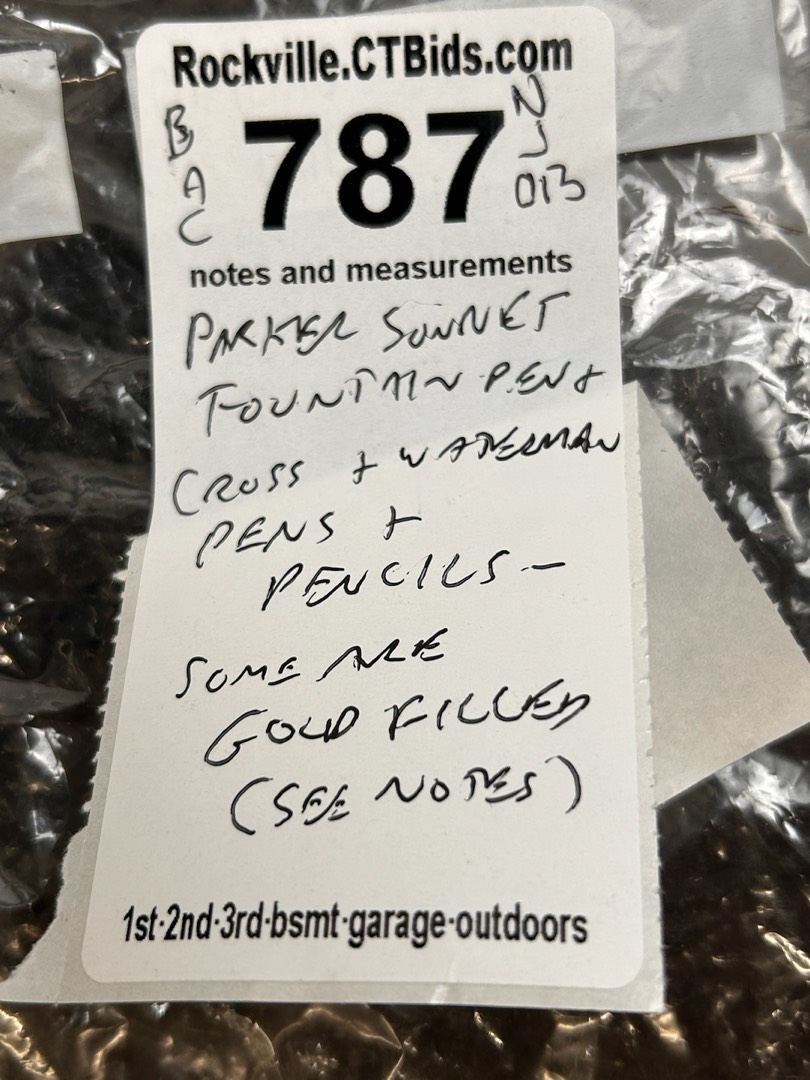 Rockville.CTBids.com
BAC
787
NJ
013
notes and measurements
PARKER SONNET
FOUNTAIN PEN +
CROSS + WATERMAN
PENS +
PENCILS -
SOME ARE
GOLD FILLED
(SEE NOTES)
1st·2nd·3rd·bsmt·garage·outdoors